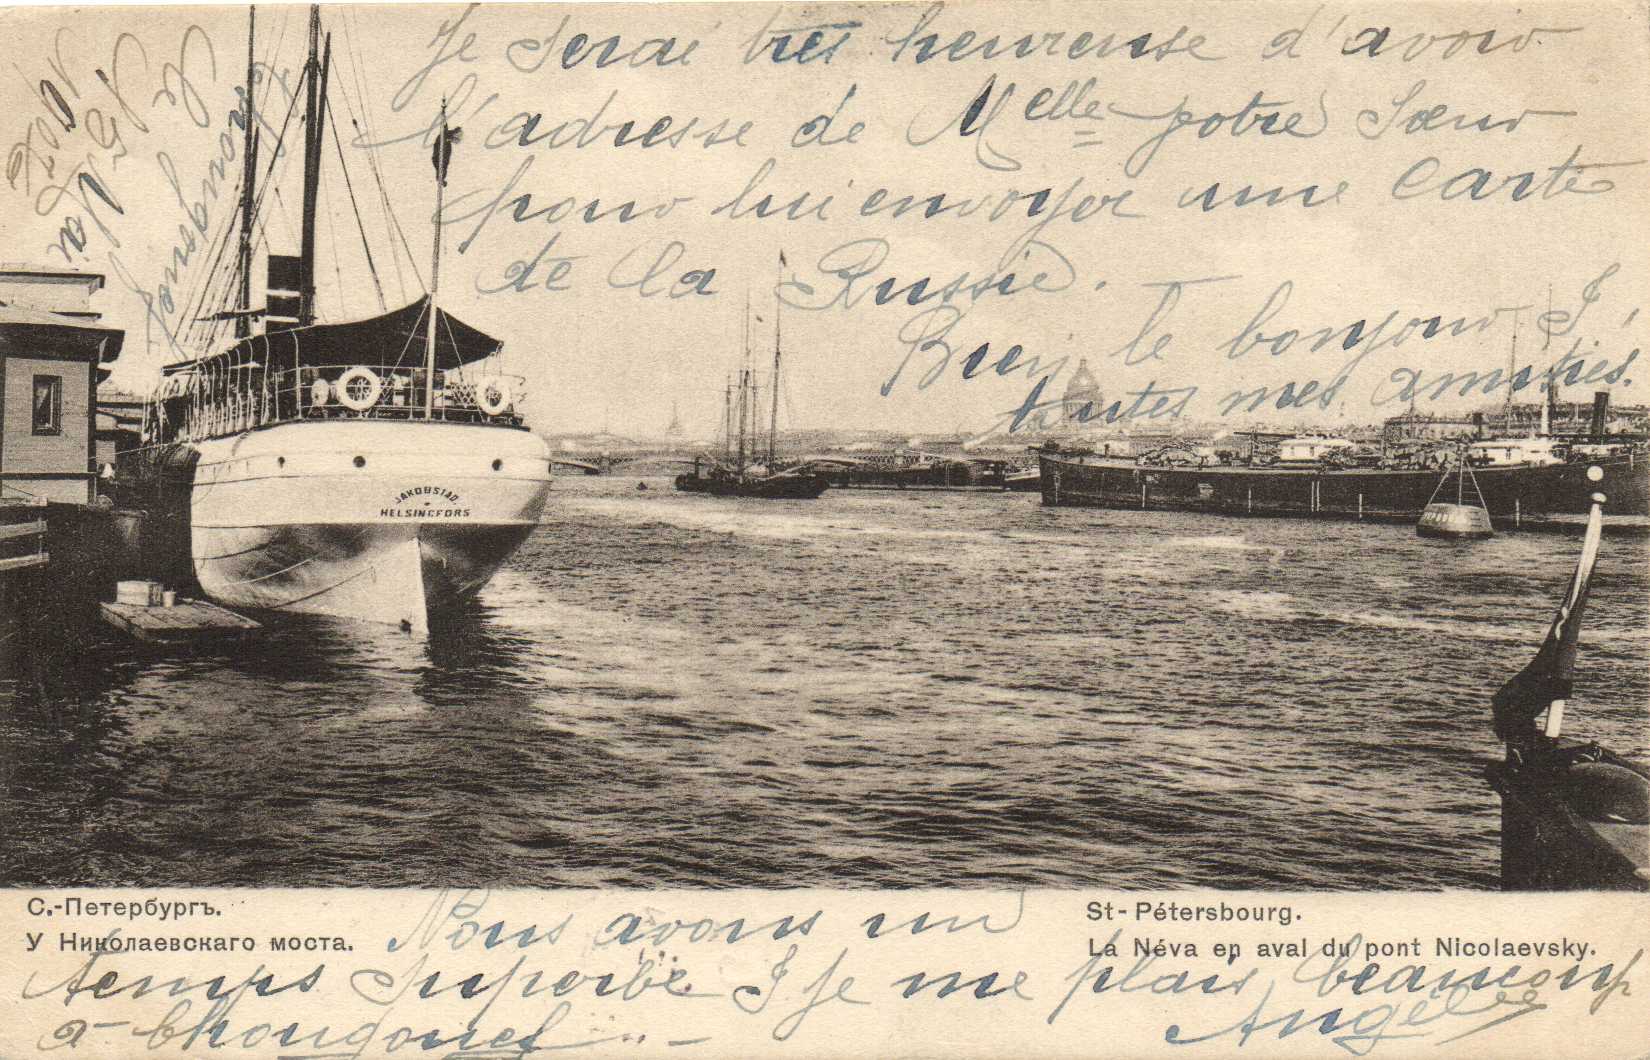 Je serai très heureuse d'avoir
l'adresse de Melle votre Sœur
pour lui envoyer une carte
de la Russie.
Bien le bonjour &
toutes mes amitiés.
Le
JAKOBSTAD
HELSINGFORS
С.-Петербургъ.
У Николаевскаго моста.
St-Pétersbourg.
La Néva en aval du pont Nicolaevsky.
Nous avons un
temps superbe & je me plais beaucoup
à
Angèle